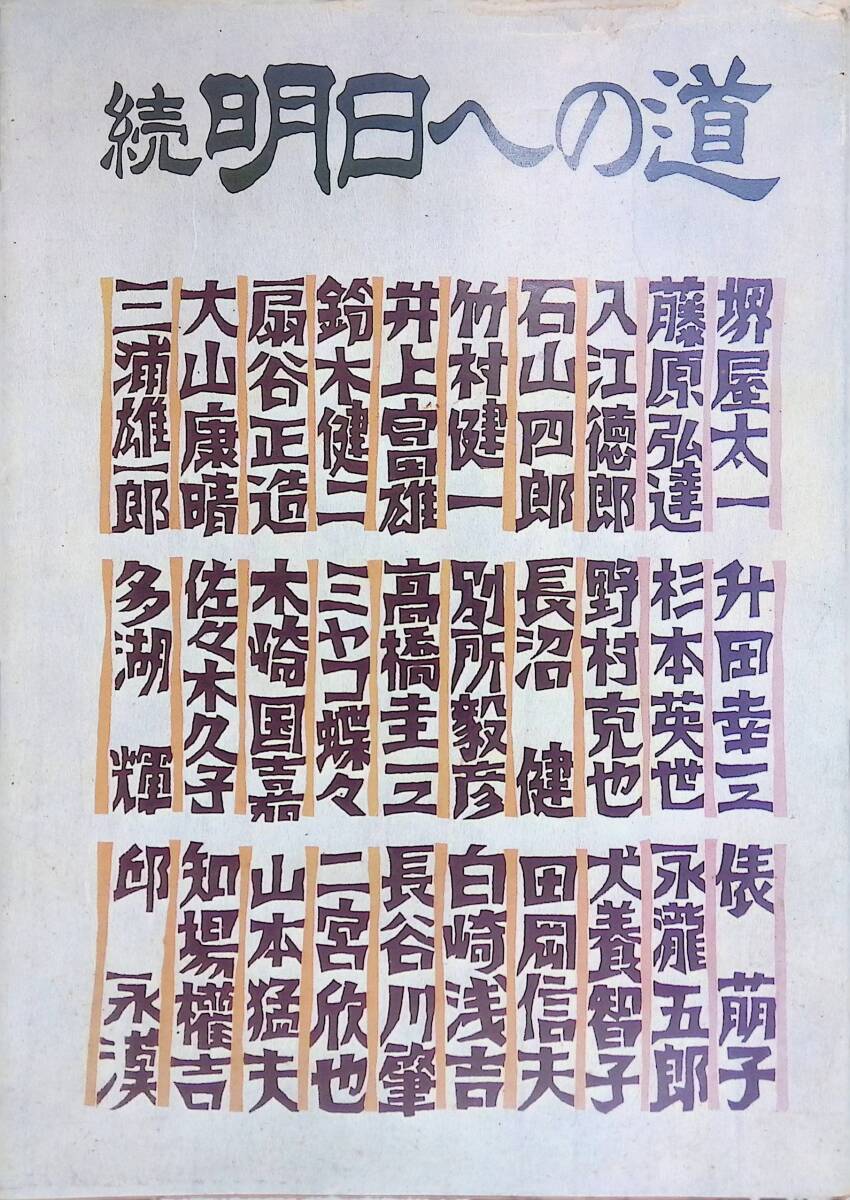 続 明日への道
堺屋太一
藤原弘達
入江徳郎
石山四郎
竹村健一
井上富雄
鈴木健二
扇谷正造
大山康晴
三浦雄一郎
升田幸三
杉本英世
野村克也
長沼 健
別所毅彦
高橋圭三
ミヤコ蝶々
木崎国嘉
佐々木久子
多湖 輝
俵 萠子
永瀧五郎
犬養智子
田岡信夫
白崎浅吉
長谷川肇
二宮欣也
山本猛夫
知場權吉
邱 永漢